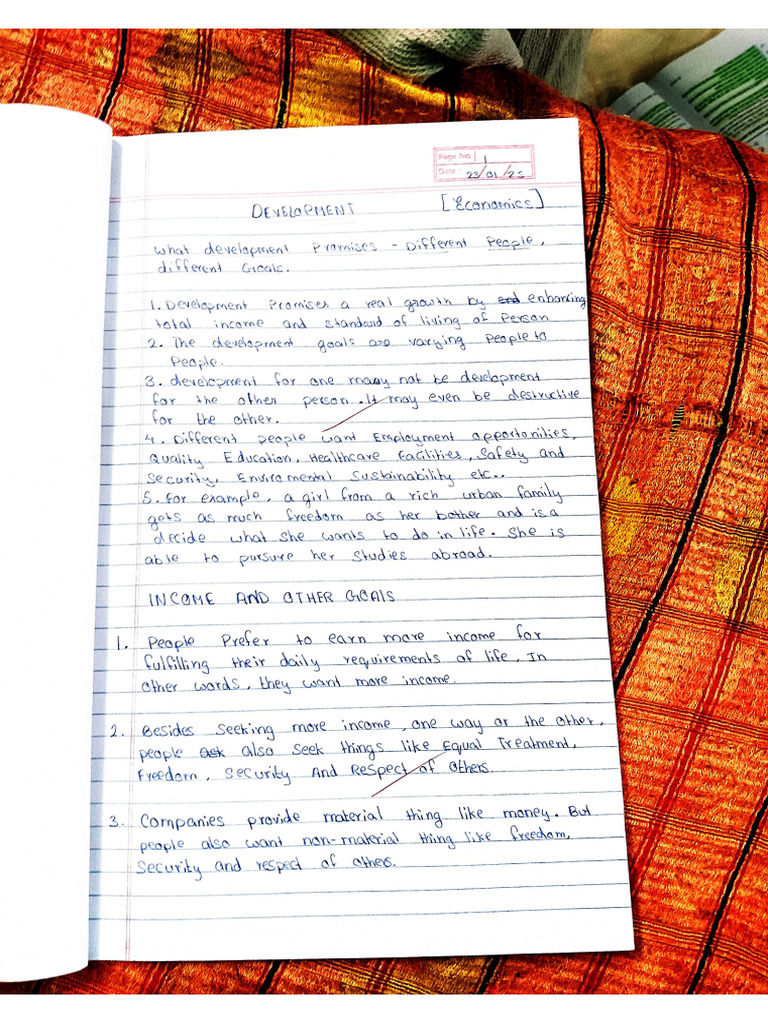 Page No. 1
Date :- 23/01/25
DEVELOPMENT [Economics]
What development Promises - Different People,
different Goals.
1. Development Promises a real growth by enhancing
total income and standard of living of Person
2. The development goals are varying People to
People.
3. development for one may not be development
for the other person. It may even be destructive
for the other.
4. Different people want Employment opportonilies,
Quality Education, Healthcare Facilities, Safety and
Security, Enviromental Sustainability etc..
5. For example, a girl from a rich urban family
gets as much freedom as her bother and is a
decide what she wants to do in life. She is
able to pursure her studies abroad.
INCOME AND OTHER GOALS
1. People Prefer to earn more income for
fulfilling their daily requirements of life, In
other words, they want more income.
2. Besides seeking more income, one way or the other,
people ask also seek things like Equal Treatment,
Freedom, Security And Respect of others.
3. Companies provide material thing like money. But
people also want non-material thing like freedom,
Security and respect of others.